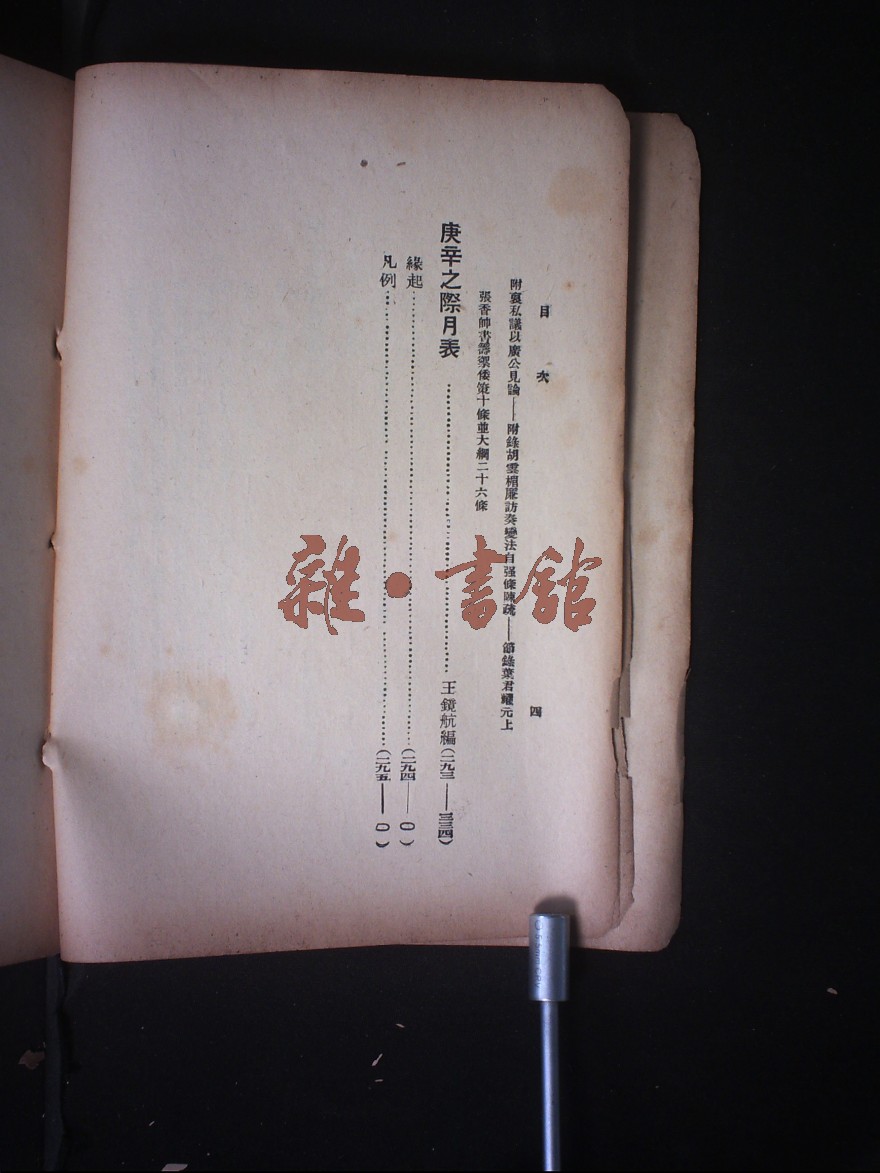 目次
四
附裏私議以廣公見論——附錄胡雲楣廉訪奏變法自强條陳疏——節錄葉君耀元上
張香帥書籌禦倭策十條並大綱二十六條
庚辛之際月表…………王鏡航編(二九三——三三四)
緣起…………(二九四——〇)
凡例…………(二九五——〇)
雜·書館